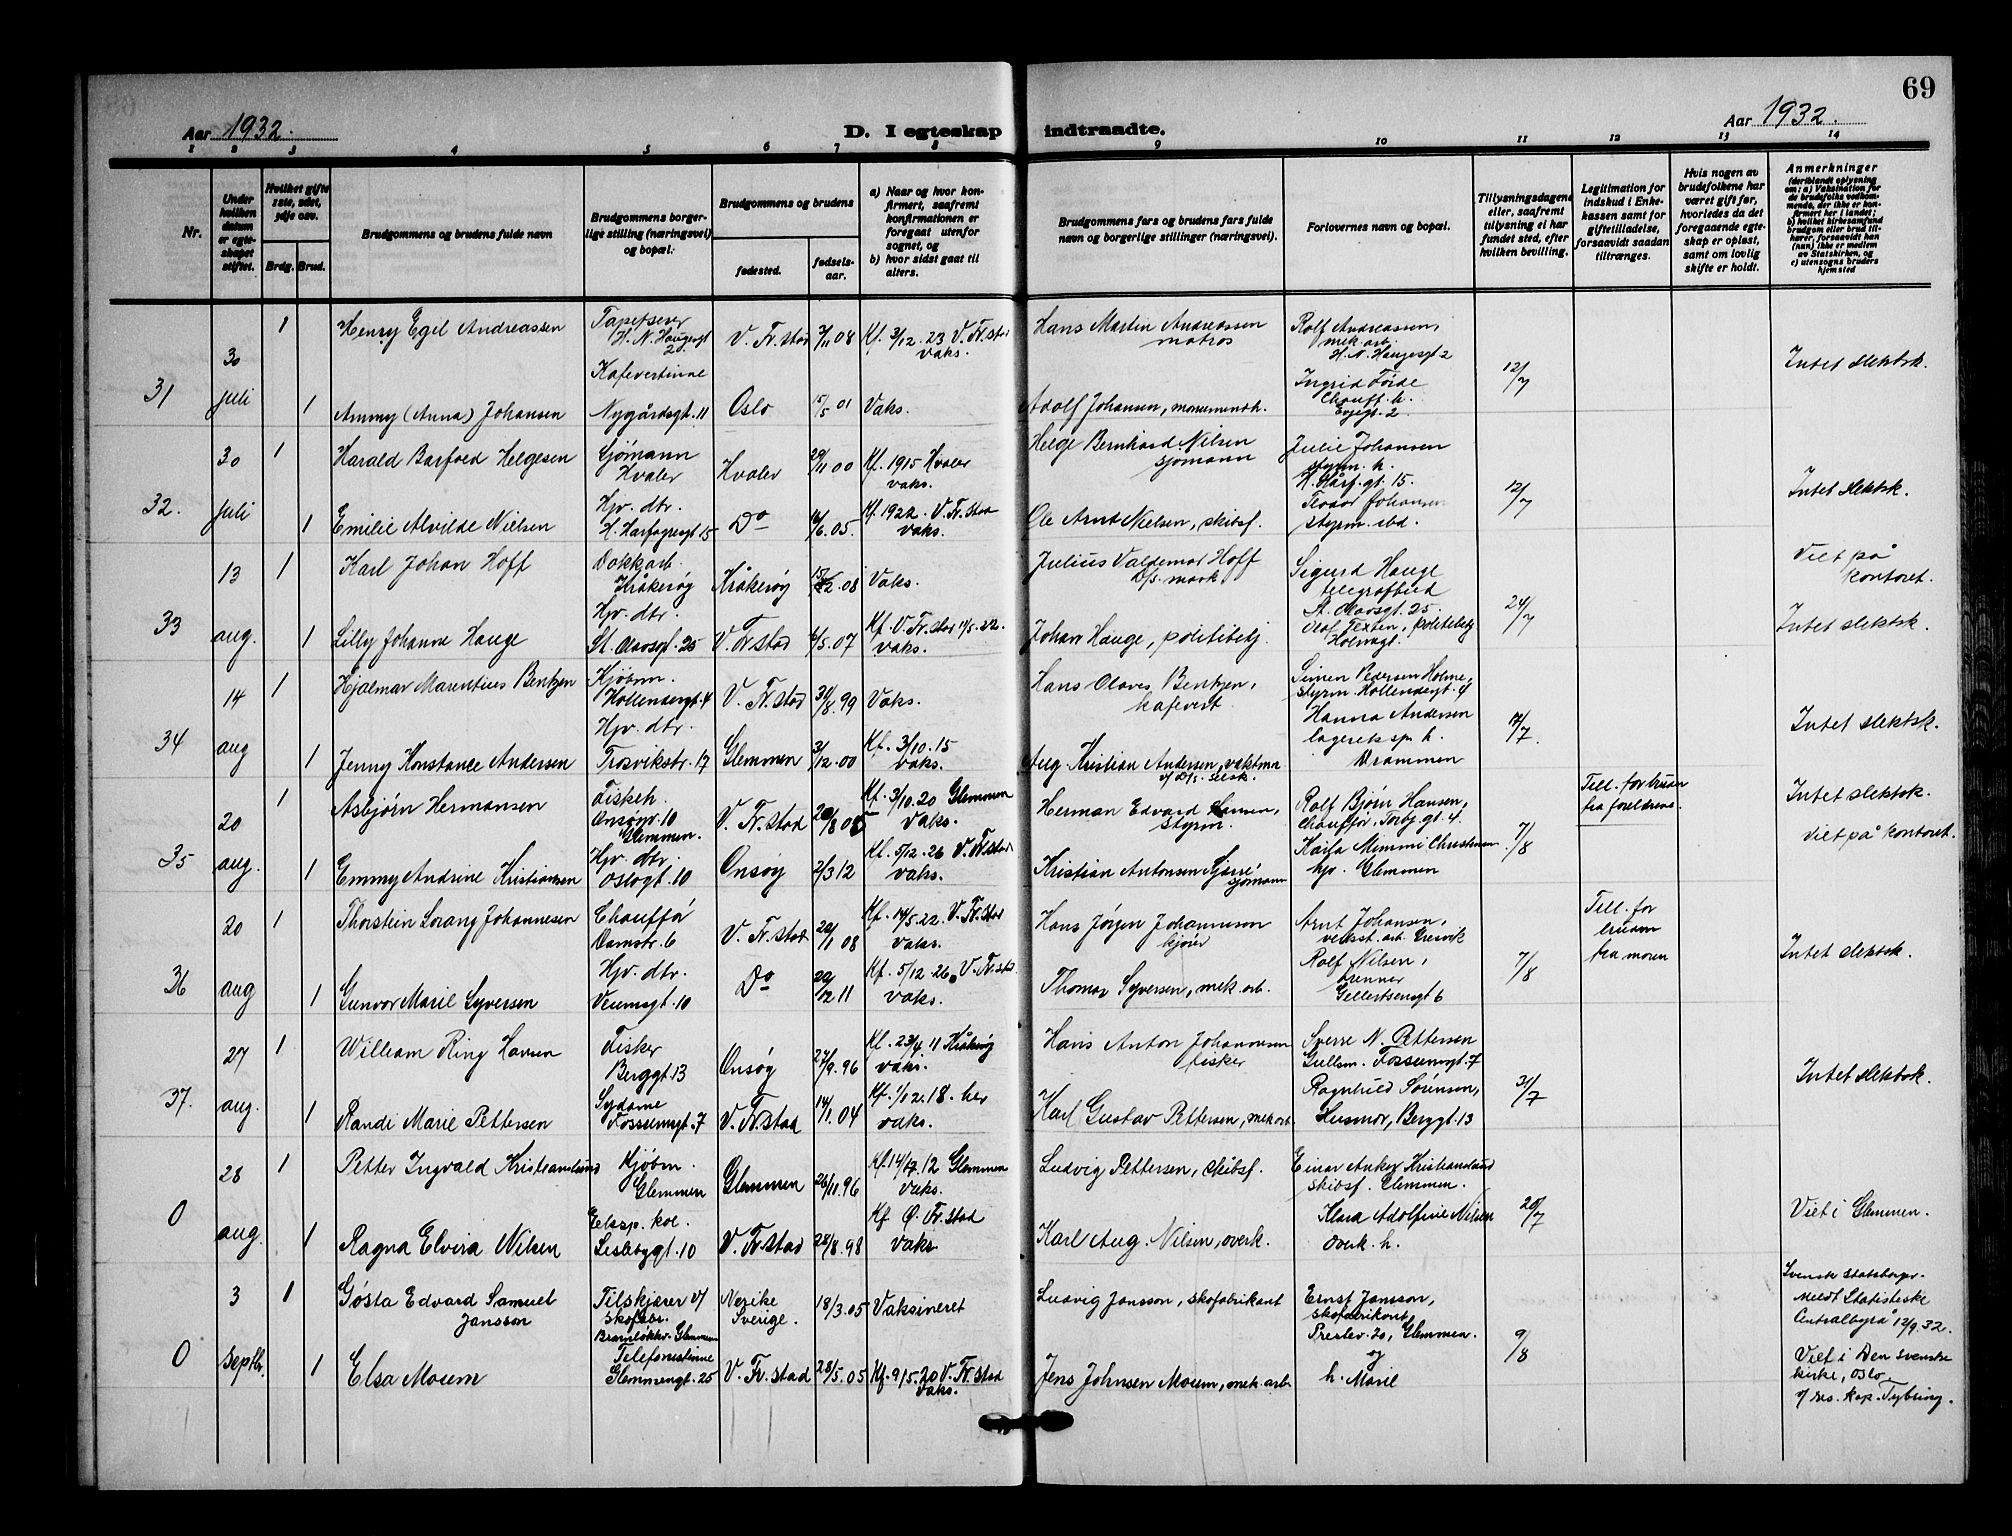 69
Aar 1932.
D. I egteskap indtraadte.
Aar 1932.
1 2 3 4 5 6 7 8 9 10 11 12 13 14
Nr.
Under hvilken datum er egteskapet stiftet.
Hvilket gifte 1ste, 2det, 3dje osv.
Brdg. Brud.
Brudgommens og brudens fulde navn
Brudgommens borgerlige stilling (næringsvei) og bopæl.
Brudgommens og brudens
fødested.
fødselsaar.
a) Naar og hvor konfirmert, saafremt konfirmationen er foregaat utenfor sognet, og
b) hvor sidst gaat til alters.
Brudgommens fars og brudens fars fulde navn og borgerlige stillinger (næringsvei).
Forlovernes navn og bopæl.
Tillysningsdagene eller, saafremt tillysning ei har fundet sted, efter hvilken bevilling.
Legitimation for indskud i Enkekassen samt for giftetilladelse, forsaavidt saadan tiltrænges.
Hvis nogen av brudefolkene har været gift før, hvorledes da det foregaaende egteskap er opløst, samt om lovlig skifte er holdt.
Anmerkninger
(deriblandt oplysning om: a) Vaksination for de brudefolks vedkommende, der ikke er konfirmert her i landet; b) hvilket kirkesamfund brudgom eller brud tilhører, forsaavidt han (hun) ikke er medlem av Statskirken, og c) utensogns bruders hjemsted
31 30 juli
1 Henry Egil Andreassen
Tapetserer H. N. Haugesgt 2.
V. Fr.stad 3/11 08 Kf. 3/12. 23 V. Fr.stad vaks.
Hans Martin Andreassen matros
Rolf Andreassen, mek. arb. H. N. Haugesgt 2
12/7
Intet slektsk.
1 Ammy (Anna) Johansen
Kafevertinne Nygårdsgt. 11
Oslo 15/5 01 Vaks.
Adolf Johansen, monumenth.
Ingrid Foide Chauff. h.
32. 30 juli
1 Harald Barfoed Helgesen
Sjømann Hvaler
Hvaler 29/11 00 Kf. 1915 Hvaler vaks.
Helge Bernhard Nilsen sjømann
Julie Johansen styrm. h. H. Hårf. gt. 15.
12/7
Intet slektsk.
1 Emilie Alvilde Nielsen
Hjv. dtr. H. Harfagresgt 15
Do 05. Kf. 1922. V. Fr.stad vaks.
Ole Arnt Nielsen, skibsf.
Teodor Johansen styrm. sbd.
33 13 aug.
1 Karl Johan Hoff
Dokkarb. Kråkerøy
Kråkerøy 08 Vaks.
Julius Valdemar Hoff D/s. mask
Sigurd Hauge telegrafbud St. Olavsgt. 25.
24/7
Viet på kontoret.
1 Lilly Johanne Hauge
Hjv. dtr. St. Olavsgt. 25
V. Fr.stad 07 Kf. V. Fr.stad 22. vaks.
Johan Hauge, politibetj.
Olaf Texten, politibetj Holmegt.
Intet slektsk.
34 14 aug
1 Hjalmar Marentius Bentzen
Kjøbm. Hollendergt. 4
V. Fr.stad 31/8. 99 Vaks.
Hans Olaves Bentzen, kafevert.
Simen Pedersen Holme, styrm. Hollendergt. 4
17/7.
Intet slektsk.
1 Jenny Konstance Andersen
Hjv. dtr. Trosvikstr. 17
Glemmen 3/12. 00 Kf. 3/10. 15 vaks.
Aug. Kristian Andersen, vaktm v/ D/s. selsk.
Hanna Andersen lagereksp. h. Drammen
35 20 aug.
1 Asbjørn Hermansen
Fiskeh. Onsøyv. 10 Glemmen.
V. Fr.stad 20/8 05 Kf. 3/10. 20 Glemmen vaks.
Herman Edvard Hansen, styrm.
Rolf Bjørn Hansen, Chauffør, Torbj. gt. 4.
7/8
Till. for bruden fra foreldrene.
Intet slektsk.
1 Emmy Andrine Kristiansen
Hjv. dtr. Oslogt. 10
Onsøy 2/3 12 Kf. 5/12. 26 V. Fr.stad vaks.
Kristian Antonsen sjømann
Karla Mimmi Christensen hjv. Glemmen
Viet på kontoret.
36 20 aug
1 Thorstein Lorang Johannesen
Chauffør Damstr. 6
V. Fr.stad 20/1 08 Kf. 14/5. 22. V. Fr.stad vaks.
Hans Jørgen Johannesen kjører
Arnt Johansen, verkst. arb. Gresvik
7/8
Till. for bruden fra moren
Intet slektsk.
1 Gunvor Marie Syversen
Hjv. dtr. Veumsgt. 10
Do 22/12 11 Kf. 5/12. 26. V. Fr.stad vaks.
Thomas Syversen, mek. arb.
Rolf Nilsen, brenner Gellertsensgt 6
37. 27 aug.
1 William Ring Hansen
Fisker Berggt. 13
Onsøy 27/9. 96 Kf. 23/4. 11 Kråkerøy vaks.
Hans Anton Johannesen fisker
Sverre N. Pettersen Gullsm. Fossumsgt. 7
31/7
Intet slektsk.
1 Randi Marie Pettersen
Sydame Fossumsgt. 7
V. Fr.stad 14/1. 04 Kf. 1/12. 18. her vaks.
Karl Gustav Pettersen, mek arb
Ragnhild Sørensen, Husmor, Berggt. 13
0 28 aug.
1 Petter Ingvald Kristianslund
Kjøbm. Glemmen
Glemmen 26/11. 96 12 Glemmen vaks.
Ludvig Pettersen, skibsf.
Einar Anker Kristianslund skibsf. Glemmen.
20/7
Viet i Glemmen.
1 Ragna Elvira Nilsen
Lislebygt. 10
V. Fr.stad 28/8. 98 Kf Ø. Fr.stad vaks.
Karl Aug. Nilsen, overk.
Klara Adolfine Nilsen overk. h.
0 3 septbr.
1 Gösta Edvard Samuel Jansson
Tilskjærer v/ skofabr. Glemmen
Nerike Sverige. 18/3. 05 Vaksineret
Ludvig Jansson, skofabrikant
Ernst Jansson, skofabrikant, Prestev. 20, Glemmen. og h. Marie
9/8
Svensk statsborger. Meldt Statistiske Centralbyrå 12/9. 32.
1 Elsa Mosum
Telefonistinne Glemmengt. 25
V. Fr.stad 28/5. 05 Kf. 9/5. 20 V. Fr.stad vaks.
Jens Johnsen Mosum, mek. arb.
Viet i Den svenske kirke, Oslo v/ res. kap. Tybring.